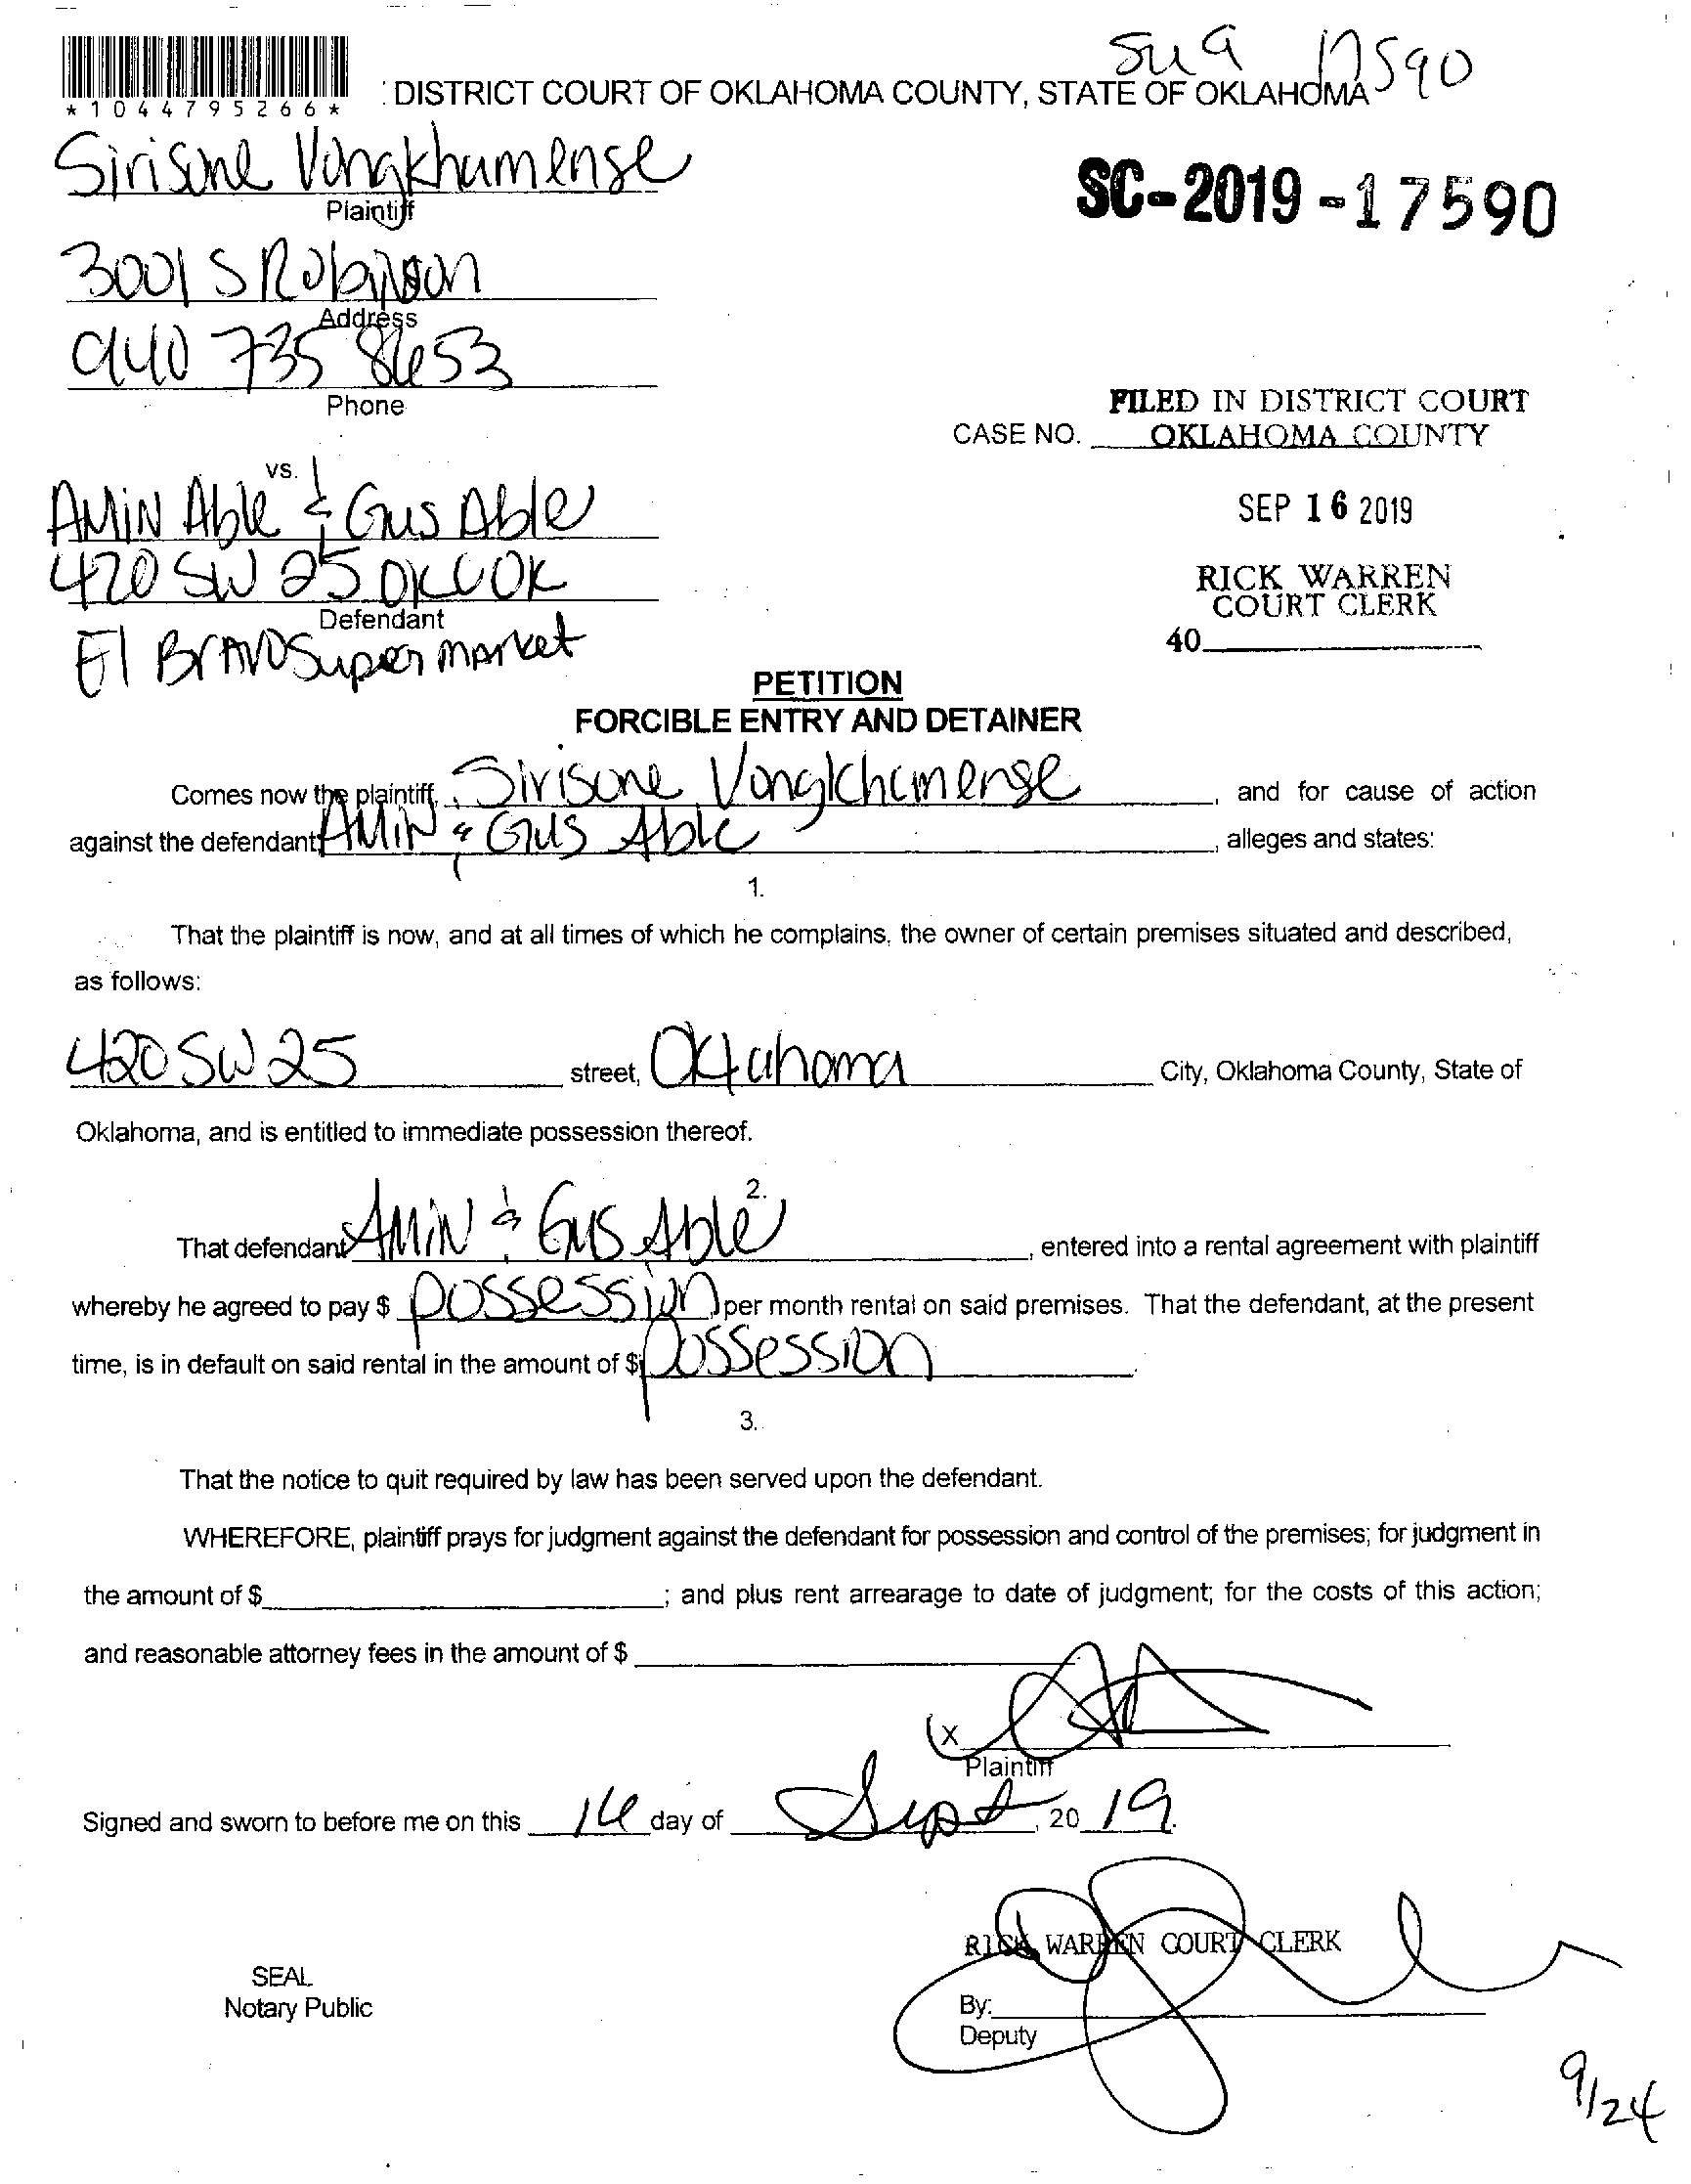 SC 19 17590
*1044795266*
DISTRICT COURT OF OKLAHOMA COUNTY, STATE OF OKLAHOMA
Sirisone Vongkhamense
Plaintiff
SC-2019-17590
3001 S Robinson
Address
940 735 8653
Phone
FILED IN DISTRICT COURT
CASE NO. OKLAHOMA COUNTY
vs.
AMIN Able & Gus Able
SEP 16 2019
420 SW 25 OKC OK
Defendant
RICK WARREN
COURT CLERK
El BrAVO Supermarket
40
PETITION
FORCIBLE ENTRY AND DETAINER
Comes now the plaintiff, Sirisone Vongkhamense, and for cause of action
against the defendant, AMIN & Gus Able, alleges and states:
1.
That the plaintiff is now, and at all times of which he complains, the owner of certain premises situated and described,
as follows:
420 SW 25 street, Oklahoma City, Oklahoma County, State of
Oklahoma, and is entitled to immediate possession thereof.
2.
That defendant AMIN & Gus Able, entered into a rental agreement with plaintiff
whereby he agreed to pay $ possession per month rental on said premises. That the defendant, at the present
time, is in default on said rental in the amount of $ possession.
3.
That the notice to quit required by law has been served upon the defendant.
WHEREFORE, plaintiff prays for judgment against the defendant for possession and control of the premises; for judgment in
the amount of $ ; and plus rent arrearage to date of judgment; for the costs of this action;
and reasonable attorney fees in the amount of $
X
Plaintiff
Signed and sworn to before me on this 16 day of Sept, 20 19.
RICK WARREN COURT CLERK
SEAL
Notary Public
By:
Deputy
9/24